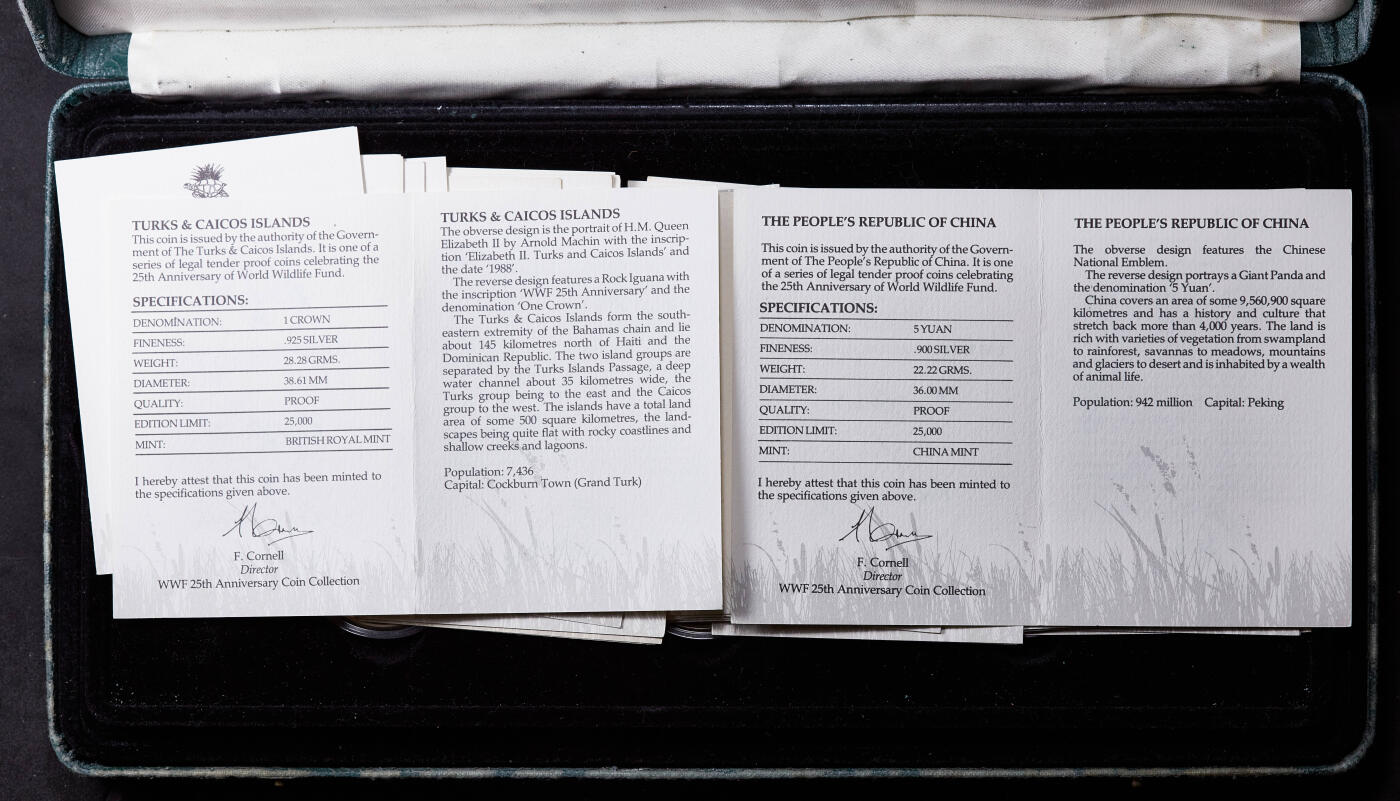 TURKS & CAICOS ISLANDS
This coin is issued by the authority of the Govern-
ment of The Turks & Caicos Islands. It is one of a
series of legal tender proof coins celebrating the
25th Anniversary of World Wildlife Fund.
SPECIFICATIONS:
DENOMINATION: 1 CROWN
FINENESS: .925 SILVER
WEIGHT: 28.28 GRMS.
DIAMETER: 38.61 MM
QUALITY: PROOF
EDITION LIMIT: 25,000
MINT: BRITISH ROYAL MINT
I hereby attest that this coin has been minted to
the specifications given above.
F. Cornell
Director
WWF 25th Anniversary Coin Collection
TURKS & CAICOS ISLANDS
The obverse design is the portrait of H.M. Queen
Elizabeth II by Arnold Machin with the inscrip-
tion ‘Elizabeth II. Turks and Caicos Islands’ and
the date ‘1988’.
The reverse design features a Rock Iguana with
the inscription ‘WWF 25th Anniversary’ and the
denomination ‘One Crown’.
The Turks & Caicos Islands form the south-
eastern extremity of the Bahamas chain and lie
about 145 kilometres north of Haiti and the
Dominican Republic. The two island groups are
separated by the Turks Islands Passage, a deep
water channel about 35 kilometres wide, the
Turks group being to the east and the Caicos
group to the west. The islands have a total land
area of some 500 square kilometres, the land-
scapes being quite flat with rocky coastlines and
shallow creeks and lagoons.
Population: 7,436
Capital: Cockburn Town (Grand Turk)
THE PEOPLE’S REPUBLIC OF CHINA
This coin is issued by the authority of the Govern-
ment of The People’s Republic of China. It is one
of a series of legal tender proof coins celebrating
the 25th Anniversary of World Wildlife Fund.
SPECIFICATIONS:
DENOMINATION: 5 YUAN
FINENESS: .900 SILVER
WEIGHT: 22.22 GRMS.
DIAMETER: 36.00 MM
QUALITY: PROOF
EDITION LIMIT: 25,000
MINT: CHINA MINT
I hereby attest that this coin has been minted to
the specifications given above.
F. Cornell
Director
WWF 25th Anniversary Coin Collection
THE PEOPLE’S REPUBLIC OF CHINA
The obverse design features the Chinese
National Emblem.
The reverse design portrays a Giant Panda and
the denomination ‘5 Yuan’.
China covers an area of some 9,560,900 square
kilometres and has a history and culture that
stretch back more than 4,000 years. The land is
rich with varieties of vegetation from swampland
to rainforest, savannas to meadows, mountains
and glaciers to desert and is inhabited by a wealth
of animal life.
Population: 942 million Capital: Peking